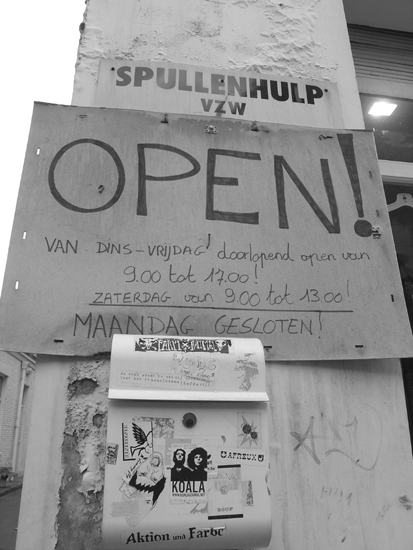 SPULLENHULP
VZW
OPEN!
VAN DINS-VRIJDAG! doorlopend open van
9.00 tot 17.00!
ZATERDAG van 9.00 tot 13.00!
MAANDAG GESLOTEN!
AFREUX
KOALA
Aktion und Farbe